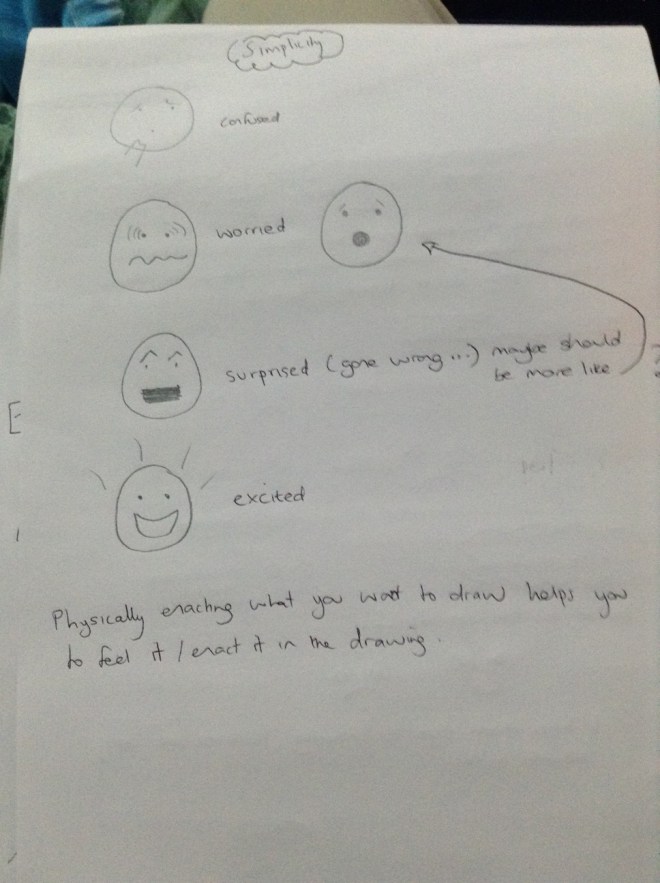 Simplicity
confused
worried
surprised (gone wrong...) maybe should
be more like
excited
Physically enacting what you want to draw helps you
to feel it / enact it in the drawing.